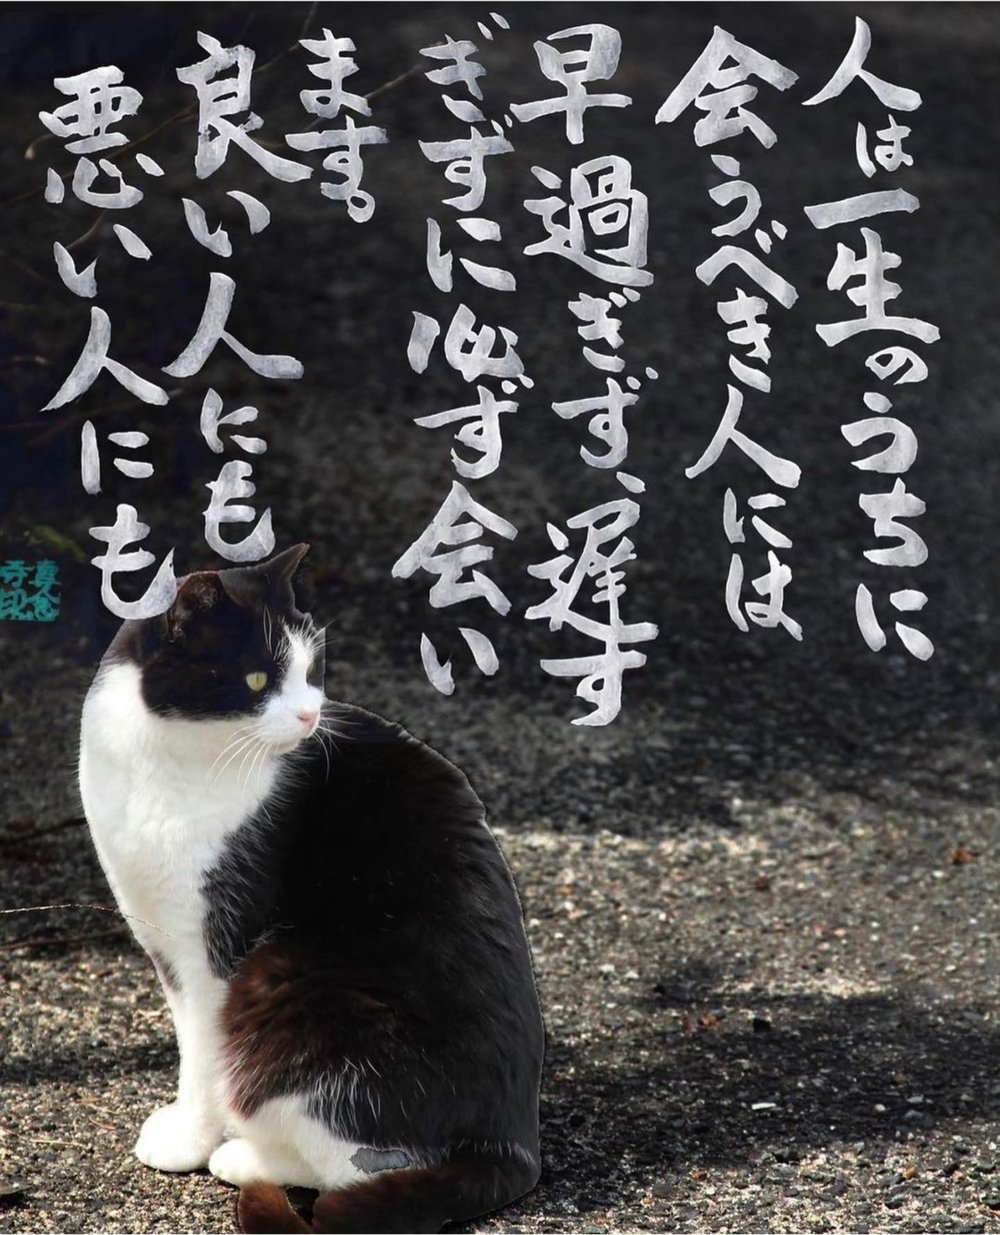 人は一生のうちに
会うべき人には
早過ぎず、遅す
ぎずに必ず会い
ます。
良い人にも
悪い人にも